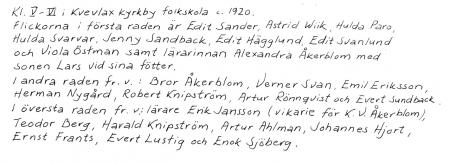 Kl. V-VI i Kvevlax kyrkby folkskola c. 1920.
Flickorna i första raden är Edit Sander, Astrid Wiik, Hulda Paro,
Hulda Svarvar, Jenny Sandback, Edit Hägglund, Edit Svanlund
och Viola Östman samt lärarinnan Alexandra Åkerblom med
sonen Lars vid sina fötter.
I andra raden fr. v. : Bror Åkerblom, Verner Svan, Emil Eriksson,
Herman Nygård, Robert Knipström, Artur Rönnqvist och Evert Sundback.
I översta raden fr. v; lärare Erik Jansson (vikarie för K. V. Åkerblom),
Teodor Berg, Harald Knipström, Artur Ahlman, Johannes Hjort,
Ernst Frants, Evert Lustig och Enok Sjöberg.